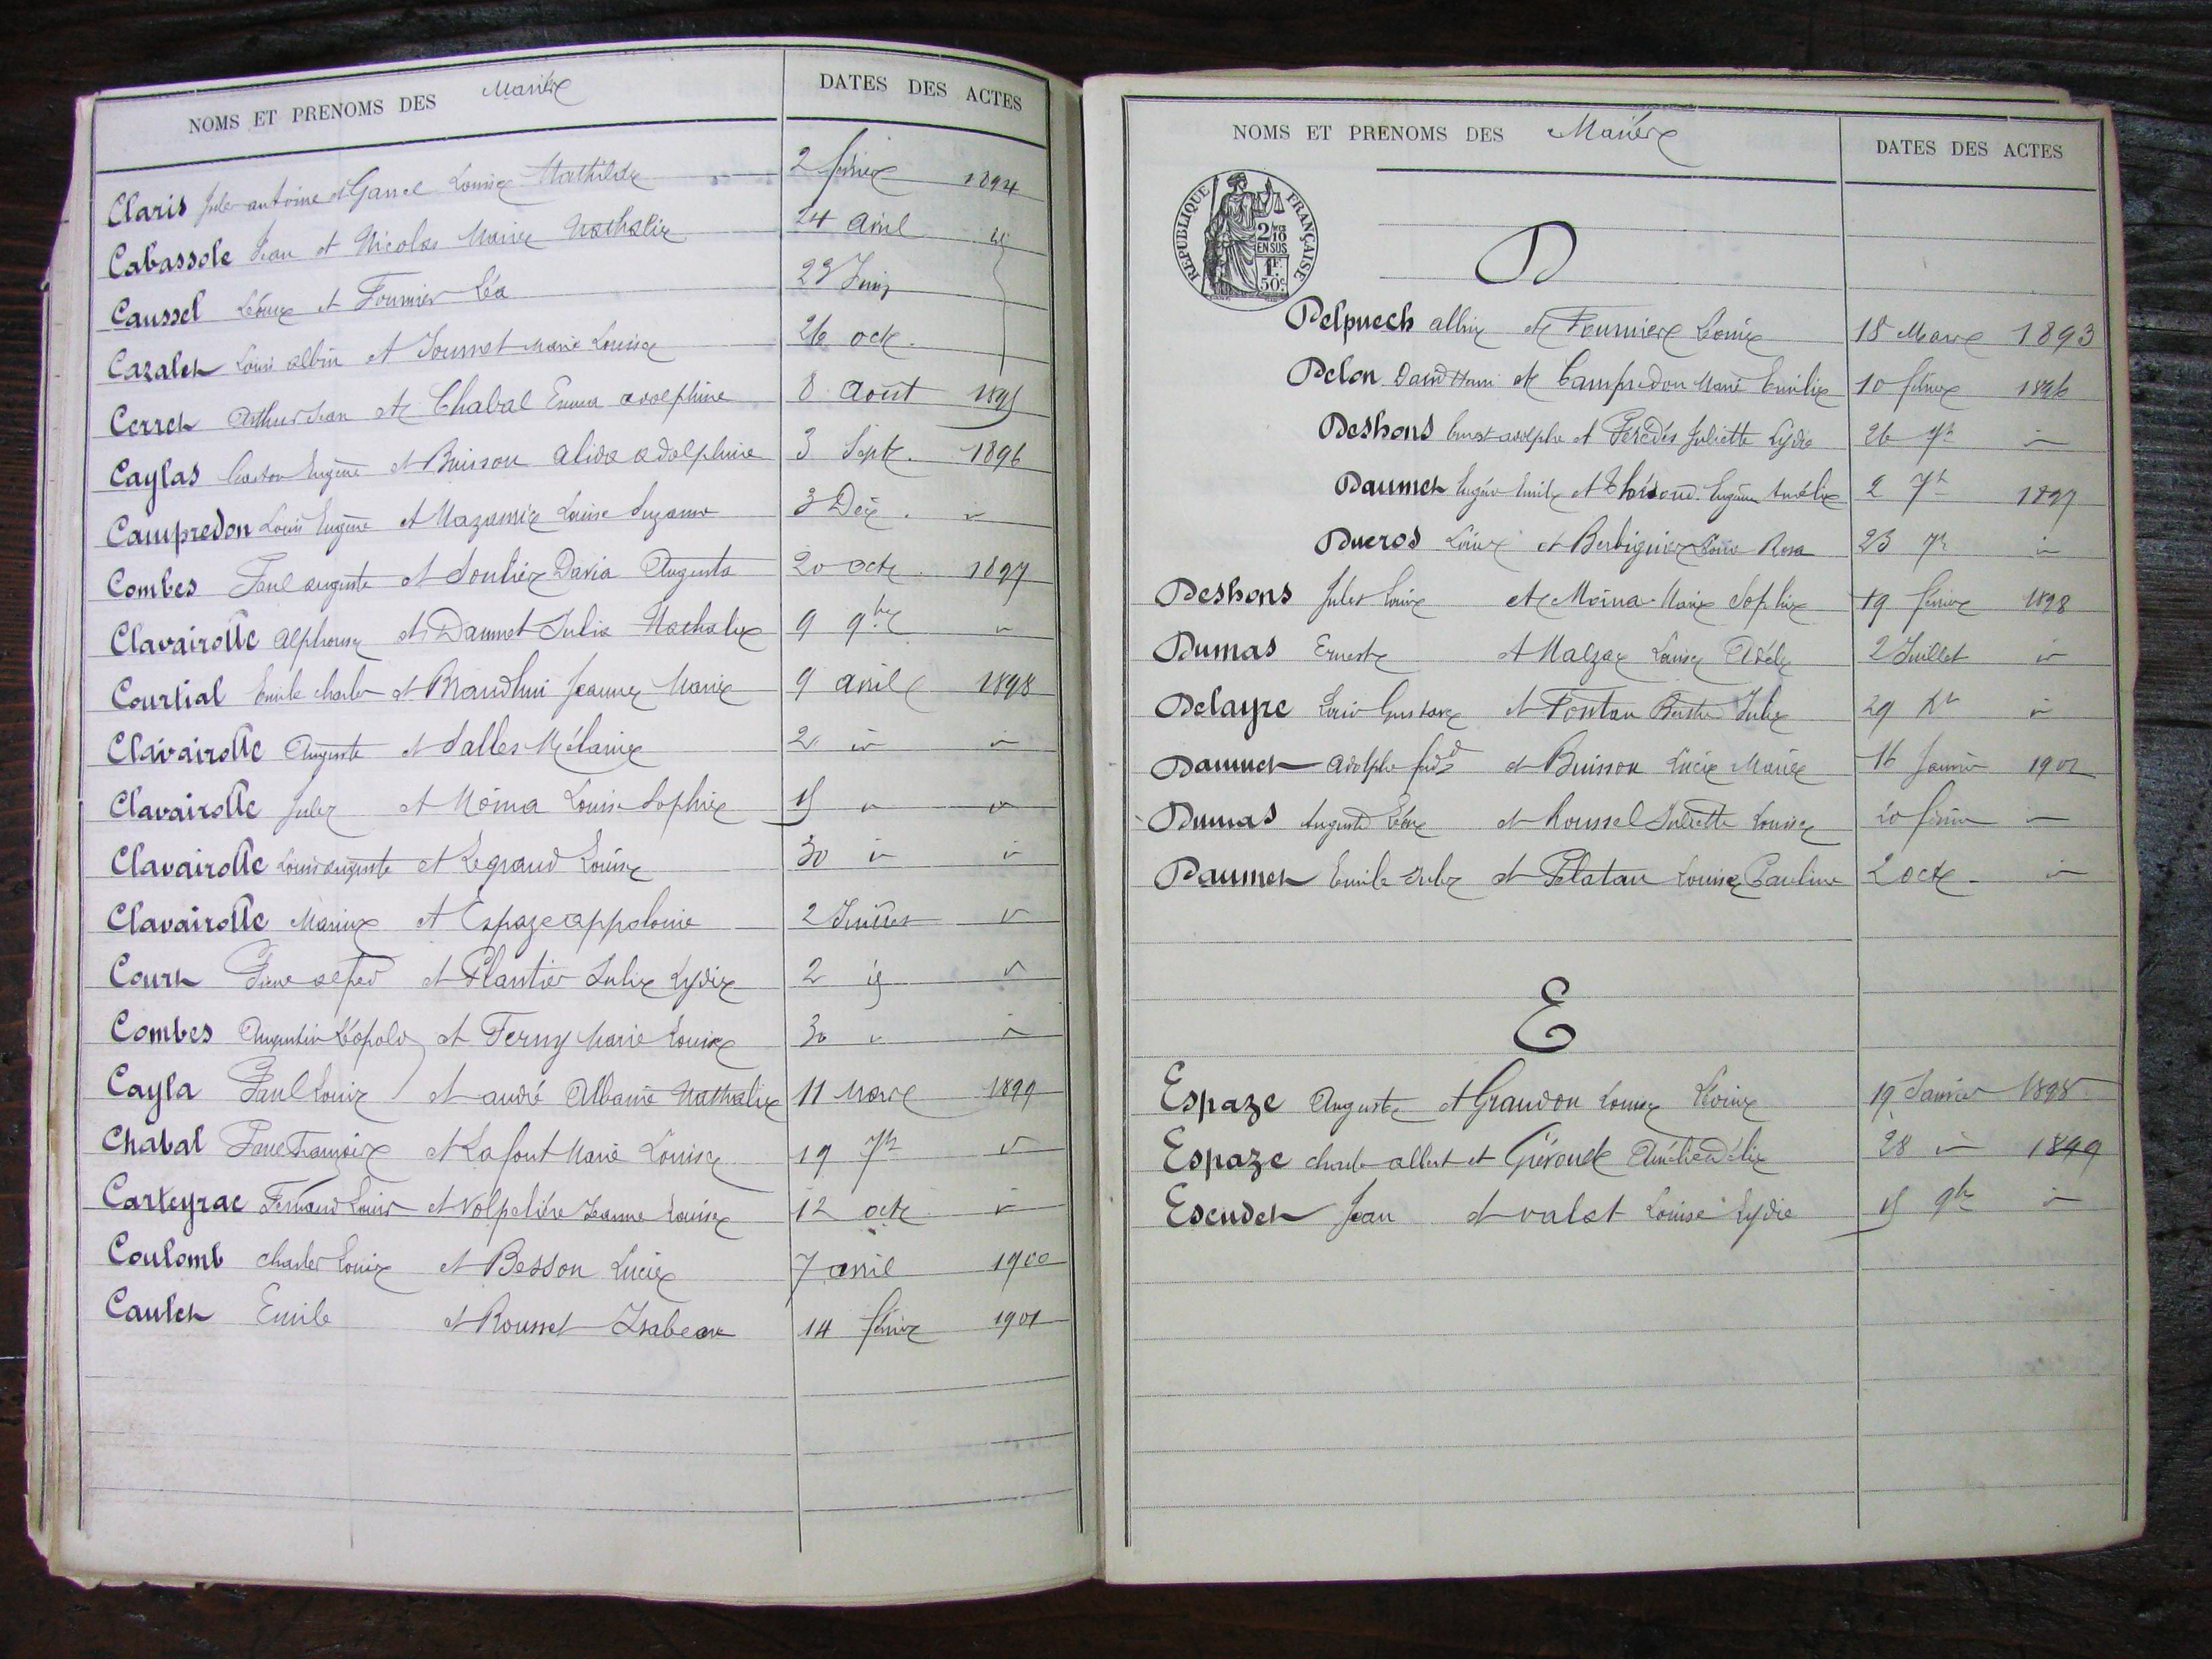 NOMS ET PRENOMS DES Mariés
DATES DES ACTES
Claris Jules antoine et Gassel Louise Mathilde 2 février 1894
Cabassole Jean et Nicolas Marie Nathalie 24 avril id
Caussel Léonce et Fournier Léa 23 Juin
Cazalet Louis albin et Journet Marie Louise 26 oct.
Cerret Arthur Jean et Chabal Emma adolphine 8 Août 1895
Caylas Gaston Eugène et Buisson alida adolphine 3 Sept. 1896
Campredon Louis Eugène et Mazauric Louise Suzanne 3 Déc. id
Combes Paul auguste et Soulier Daria Augusta 20 oct. 1897
Clavairolle Alphonse et Daumet Julia Nathalie 9 9bre id
Courtial Emile charles et Brandhui Jeanne Marie 9 avril 1898
Clavairolle Auguste et Salles Mélanie 2 id id
Clavairolle Jules et Moina Louise Sophie 15 id id
Clavairolle Louis auguste et Legrand Louise 30 id id
Clavairolle Marius et Espaze appolonie 2 Juillet id
Court Pierre alfred et Plantier Julie Lydie 2 id id
Combes Augustin Léopold et Ferny Marie Louise 30 id id
Cayla Paul Louis et andré Albanie Nathalie 11 Mars 1899
Chabal Paul François et Lafont Marie Louise 19 7bre id
Carteyrac Fernand Louis et Volpelière Jeanne Louise 12 oct. id
Coulomb charles Louis et Besson Lucie 7 avril 1900
Caulet Emile et Rousset Isabeau 14 février 1901
NOMS ET PRENOMS DES Mariés
DATES DES ACTES
REPUBLIQUE FRANÇAISE
2/10 EN SUS
1F 50c
D
Delpuech albin et Fournier Louise 18 Mars 1893
Delon David Henri et Campredon Marie Emilie 10 février 1896
Deshons Ernest adolphe et Perédès Juliette Lydie 26 7bre id
Daumet Eugène Emile et Eugénie Amélie 2 7bre 1897
Ducros Louis et Berbiguier Marie Rosa 23 7bre id
Deshons Jules Louis et Moina Marie Sophie 19 février 1898
Dumas Ernest et Malzac Louise Adèle 2 Juillet id
Delayre Louis Gustave et Fontan Berthe Julie 29 Xbre id
Daumet Adolphe fred et Buisson Lucie Marie 16 Janvier 1901
Dumas Auguste Léon et Roussel Juliette Louise 20 février id
Daumet Emile Jules et Platau Louise Pauline 2 oct. id
E
Espaze Auguste et Graudon Louise Léonie 19 Janvier 1898
Espaze charles albert et Gérout Amélie Délie 28 id 1899
Escudet Jean et valat Louise Lydie 15 9bre id